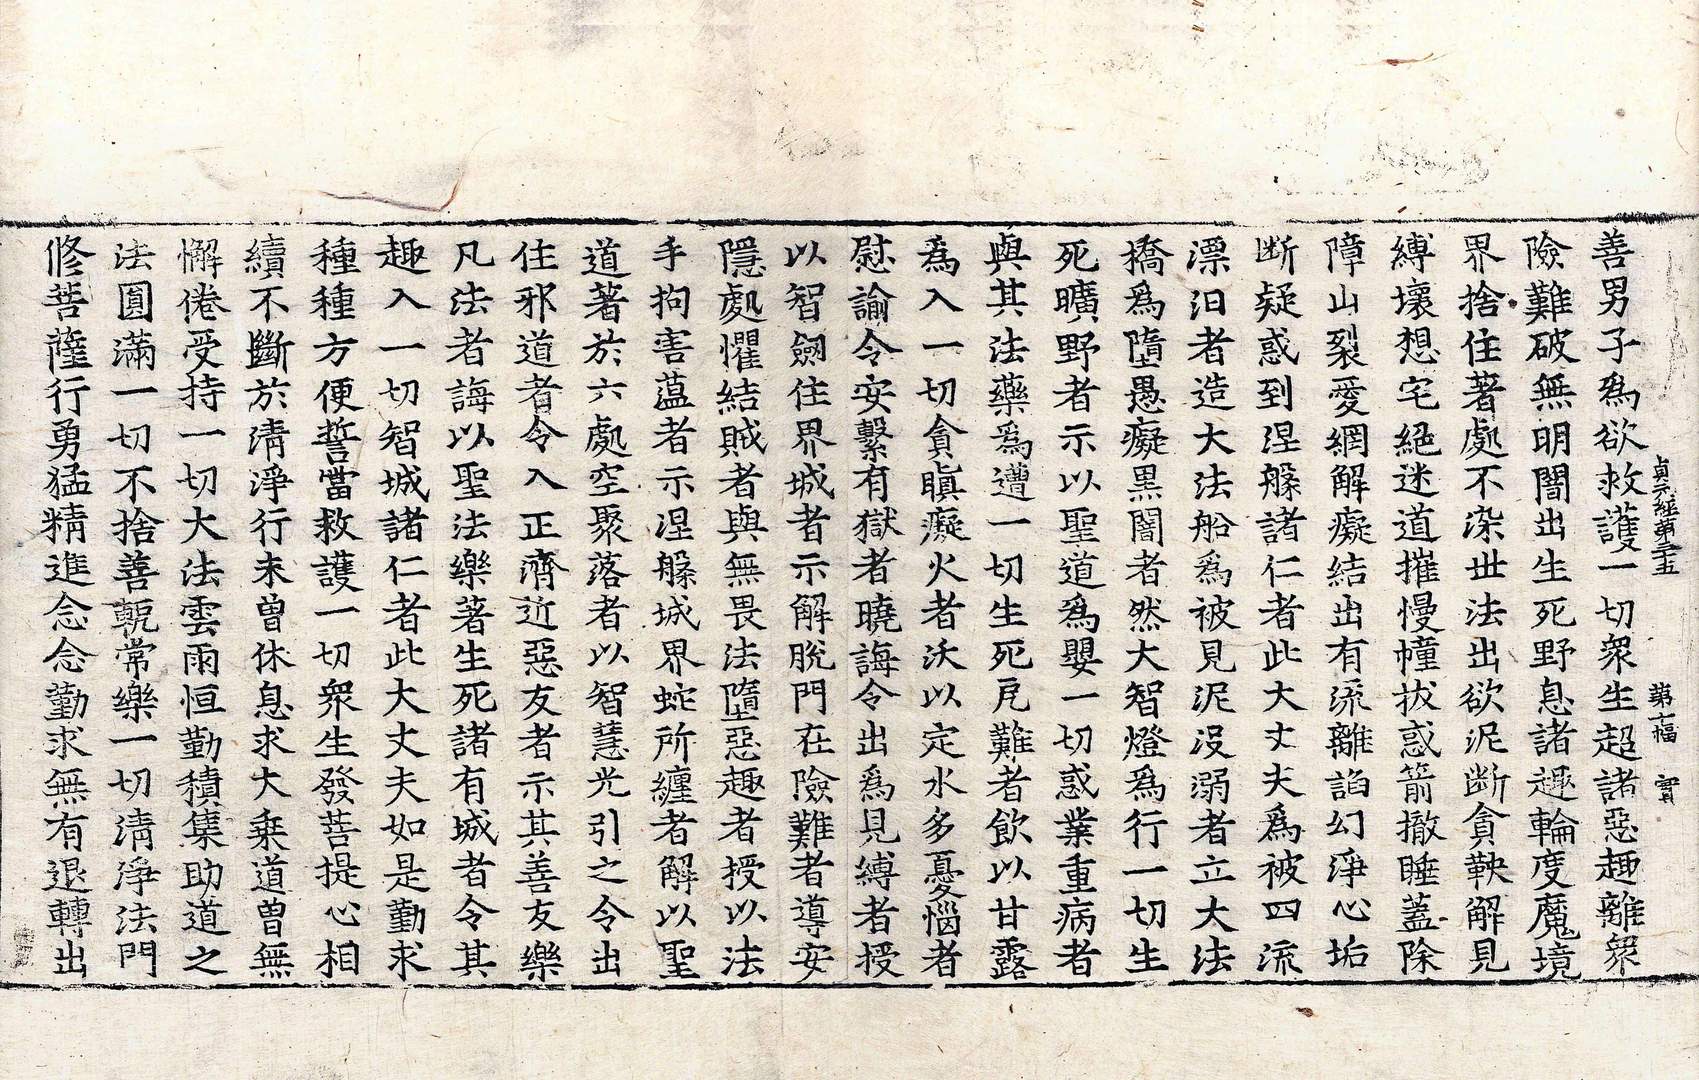 貞元經第三十五　第十福　寶
善男子爲欲救護一切衆生超諸惡趣離衆
險難破無明闇出生死野息諸趣輪度魔境
界捨住著處不染世法出欲泥断貪鞅解見
縛壞想宅絕迷道摧慢幢拔惑箭撤睡蓋除
障山裂愛網解癡結出有流離諂幻淨心垢
断疑惑到涅槃諸仁者此大丈夫爲被四流
漂汩者造大法船爲被見泥没溺者立大法
橋爲墮愚癡黒闇者然大智燈爲行一切生
死曠野者示以聖道爲嬰一切惑業重病者
與其法藥爲遭一切生死戹難者飲以甘露
爲入一切貪瞋癡火者沃以定水多憂惱者
慰諭令安繫有獄者曉誨令出爲見縛者授
以智劒住界城者示解脫門在險難者導安
隱處懼結賊者與無畏法墮惡趣者授以法
手拘害藴者示涅槃城界蛇所纏者解以聖
道著於六處空聚落者以智慧光引之令出
住邪道者令入正濟近惡友者示其善友樂
凡法者誨以聖法樂著生死諸有城者令其
趣入一切智城諸仁者此大丈夫如是勤求
種種方便誓當救護一切衆生發菩提心相
續不斷於清淨行未曾休息求大乘道曽無
懈倦受持一切大法雲雨恒勤積集助道之
法圓滿一切不捨善軛常樂一切清淨法門
修菩薩行勇猛精進念念勤求無有退轉出